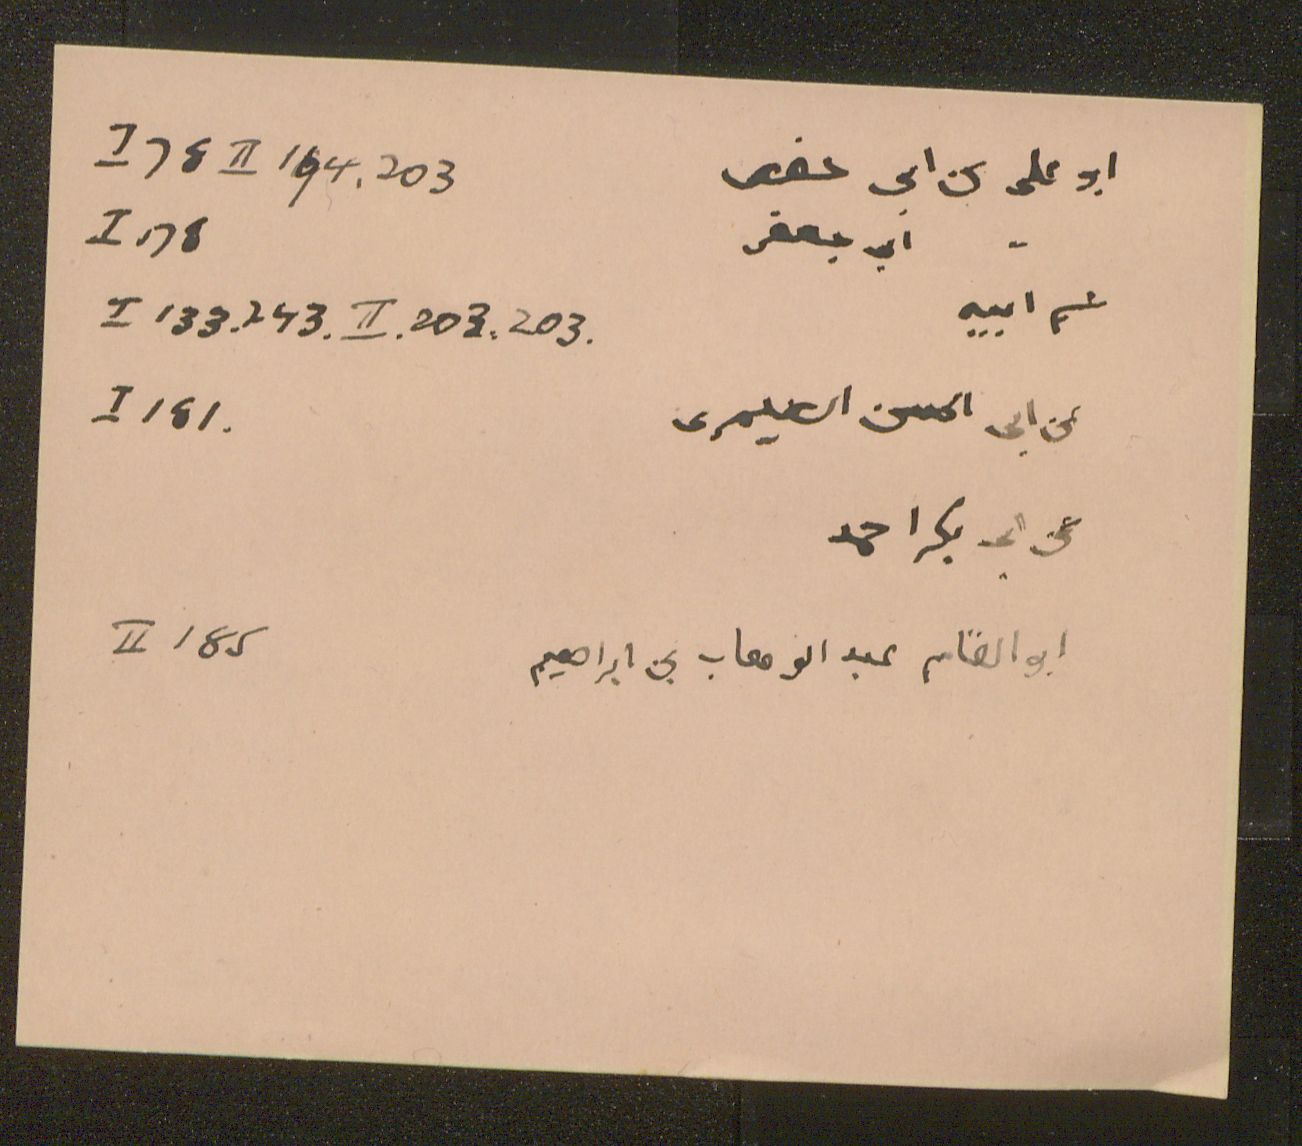 ابو على بن ابى حفص I 78 II 194. 203
- ابى جعفر I 178
عم ابيه I 133. 243. II. 203. 203.
عن ابى الحسن الصيمرى I 181.
عن ابى بكر احمد
ابو القاسم عبد الوهاب بن ابراهيم II 185